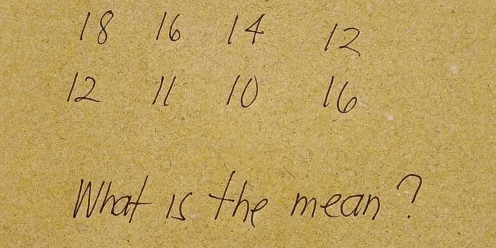 18 16 14 12
12 11 10 16
What is the mean?